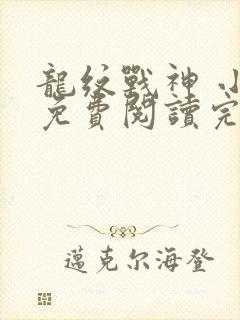 龍紋戰神 小
免費閱讀完
邁克尔海登